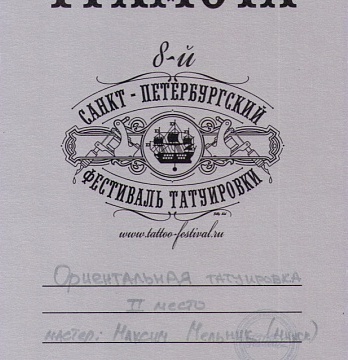 ГРАМОТА
8-й
САНКТ-ПЕТЕРБУРГСКИЙ
ФЕСТИВАЛЬ ТАТУИРОВКИ
www.tattoo-festival.ru
Ориентальная татуировка
II место
мастер: Максим Мельник (Минск)